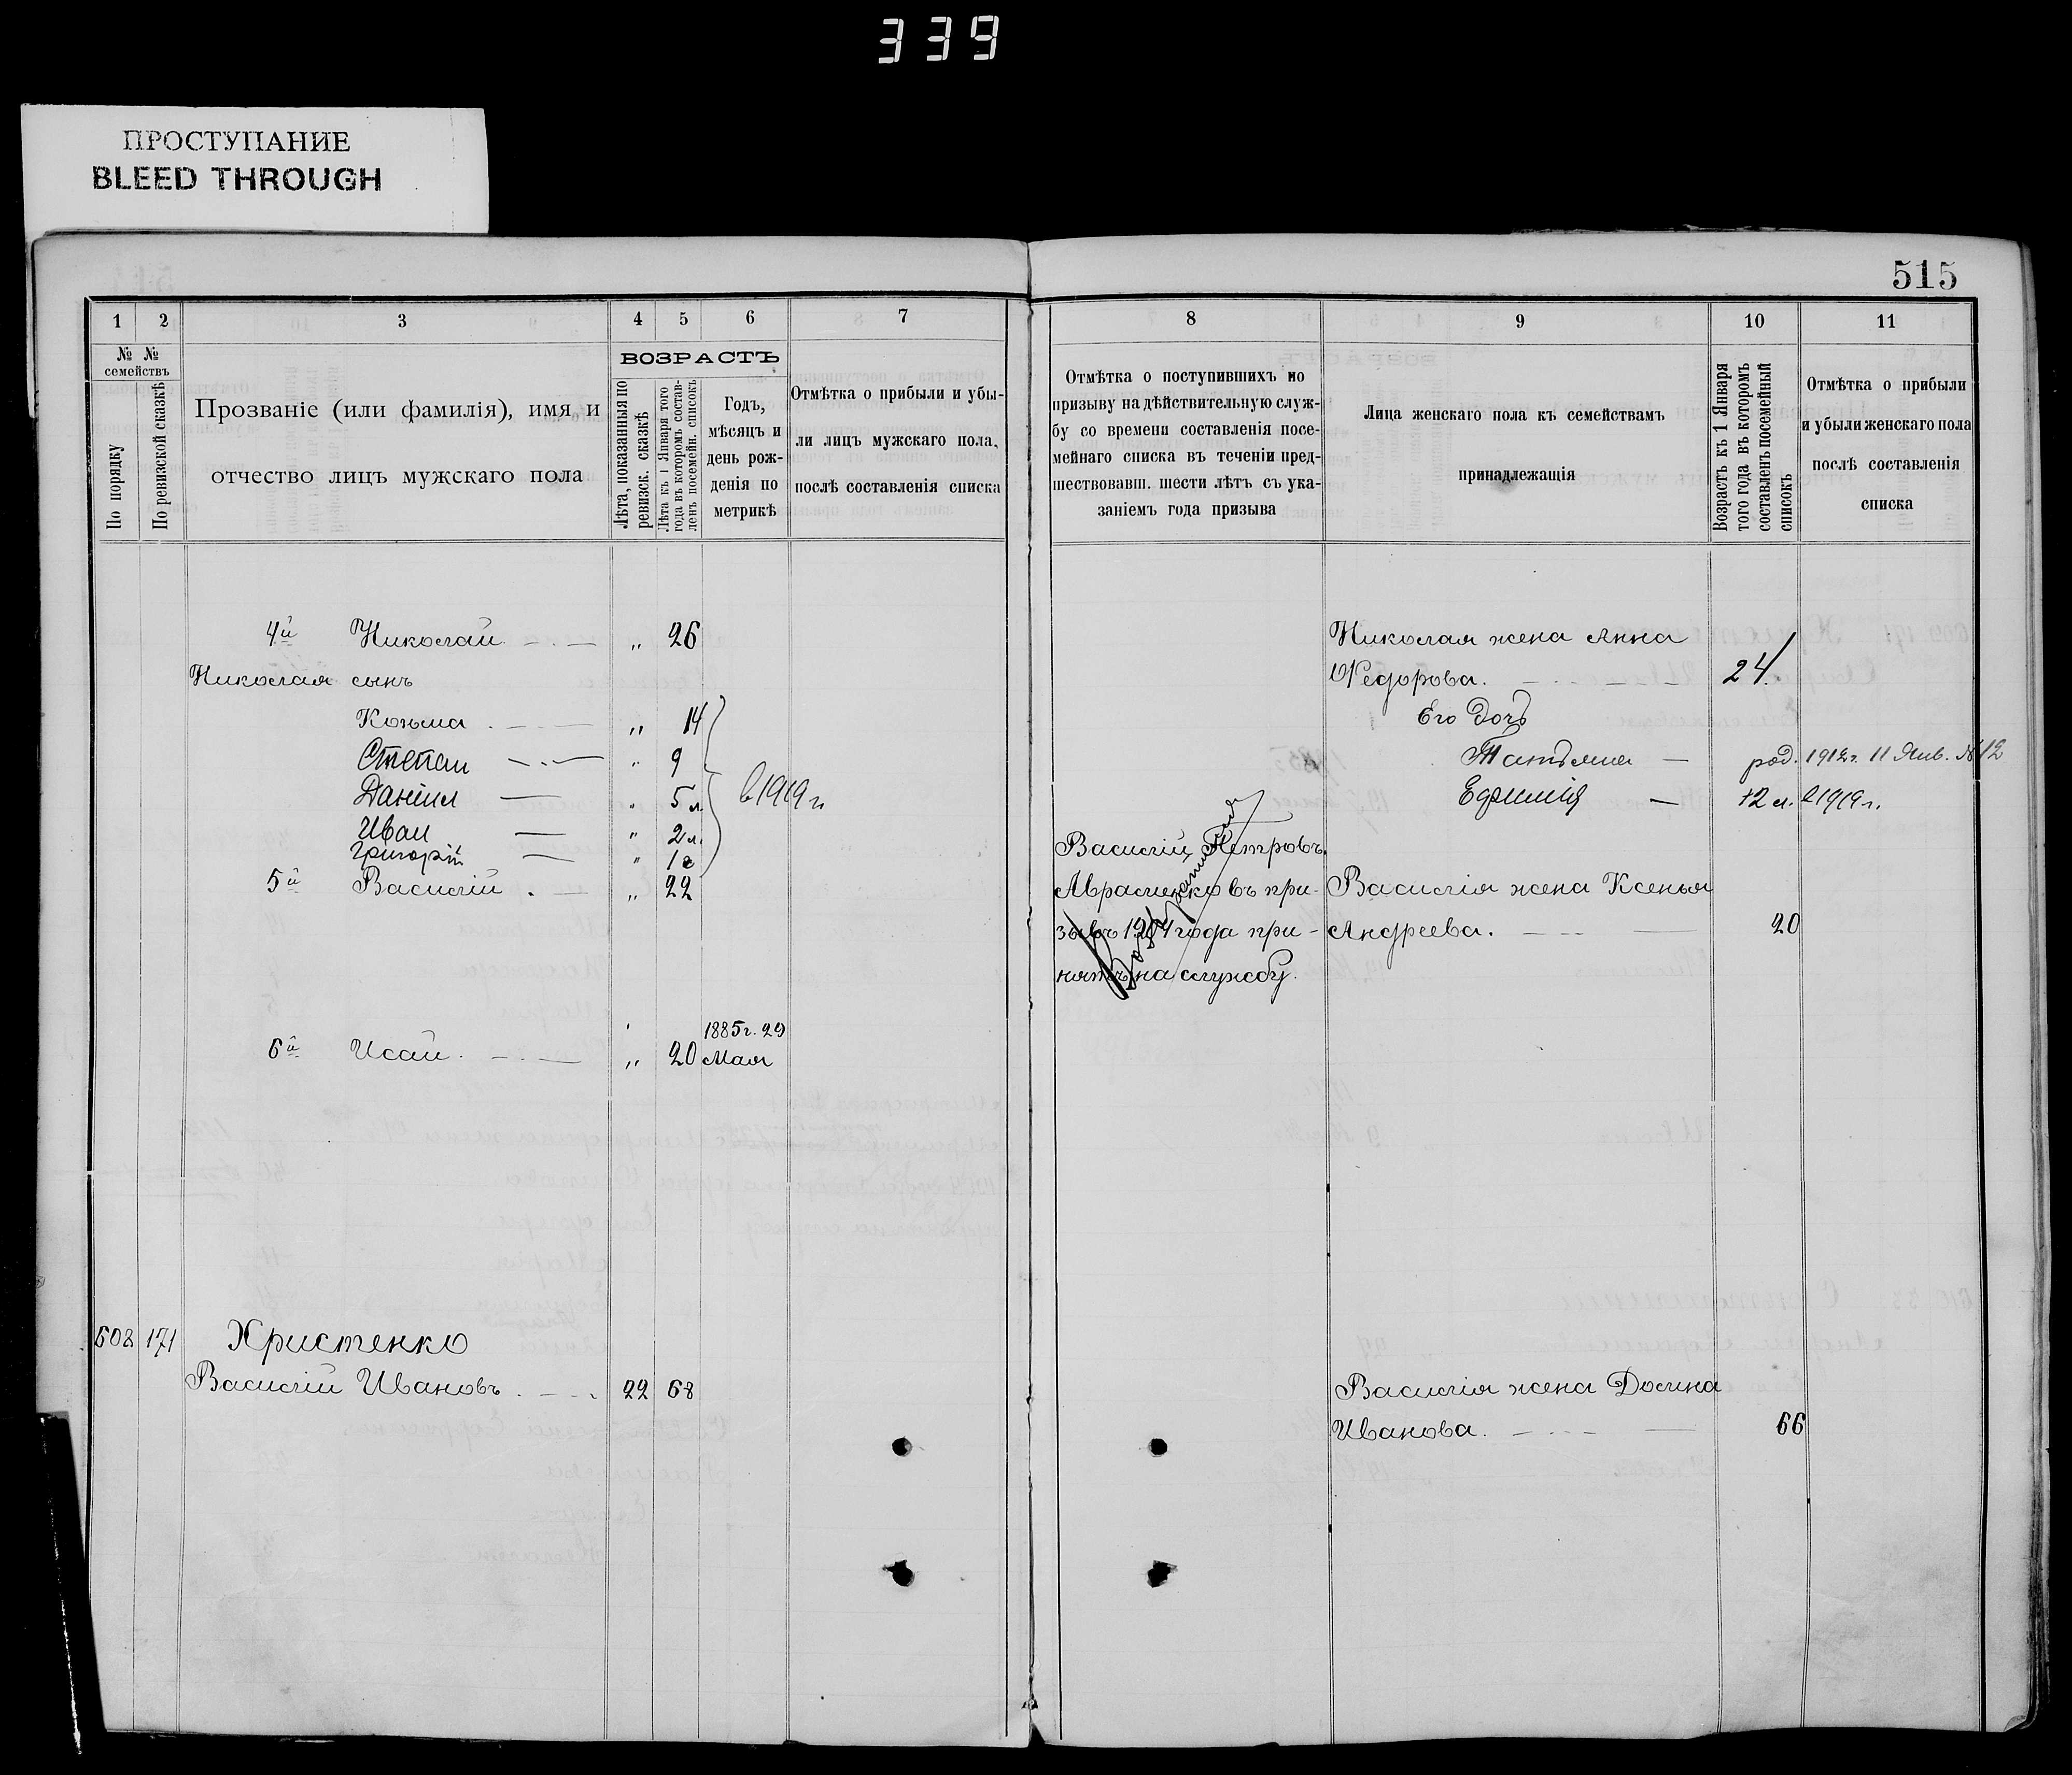 339
ПРОСТУПАНИЕ
BLEED THROUGH
515
1 2 3 4 5 6 7
№ № семействъ
По порядку
По ревизской сказкѣ
Прозваніе (или фамилія), имя и
отчество лицъ мужскаго пола
ВОЗРАСТЪ
Лѣта, показанныя по
ревизск. сказкѣ
Лѣта къ 1 Января того
года въ которомъ состав-
ленъ посемейн. списокъ
Годъ,
мѣсяцъ и
день рож-
денія по
метрикѣ
Отмѣтка о прибыли и убы-
ли лицъ мужскаго пола,
послѣ составленія списка
8 9 10 11
Отмѣтка о поступившихъ по
призыву на дѣйствительную служ-
бу со времени составленія посе-
мейнаго списка въ теченіи пред-
шествовавш. шести лѣтъ съ ука-
заніемъ года призыва
Лица женскаго пола къ семействамъ
принадлежащія
Возрастъ къ 1 Января
того года въ которомъ
составленъ посемейный
списокъ
Отмѣтка о прибыли
и убыли женскаго пола
послѣ составленія
списка
4й Николай " 26
Николая сынъ
Козьма " 14
Степан " 9
Даніил " 5 л
Иван " 2 л.
Григорій " 1
в 1919 г.
5й Василій " 22
6й Исай " 20 1885 г. 29
Мая
608 171 Христенко
Василій Ивановъ 22 68
Василій Петровъ
Авраменко въ при-
зывъ 1904 года при-
нятъ на службу.
Николая жена Анна
Федорова. 24
Его дочь
Татьяна — род. 1912 г. 11 Янв. № 12
12 л. в 1919 г.
Василія жена Ксенья
Андреева. 20
Василія жена Домна
Иванова. 66